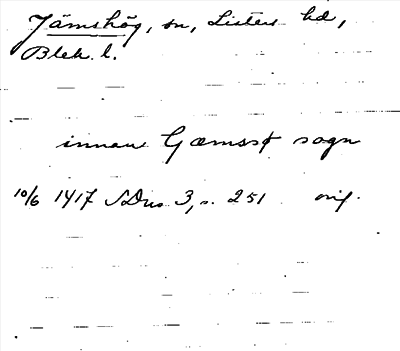 Jämshög, sn, Listers hd,
Blek. l.
innan Gæmsø sogn
10/6 1417 SDns 3, s. 251 orig.